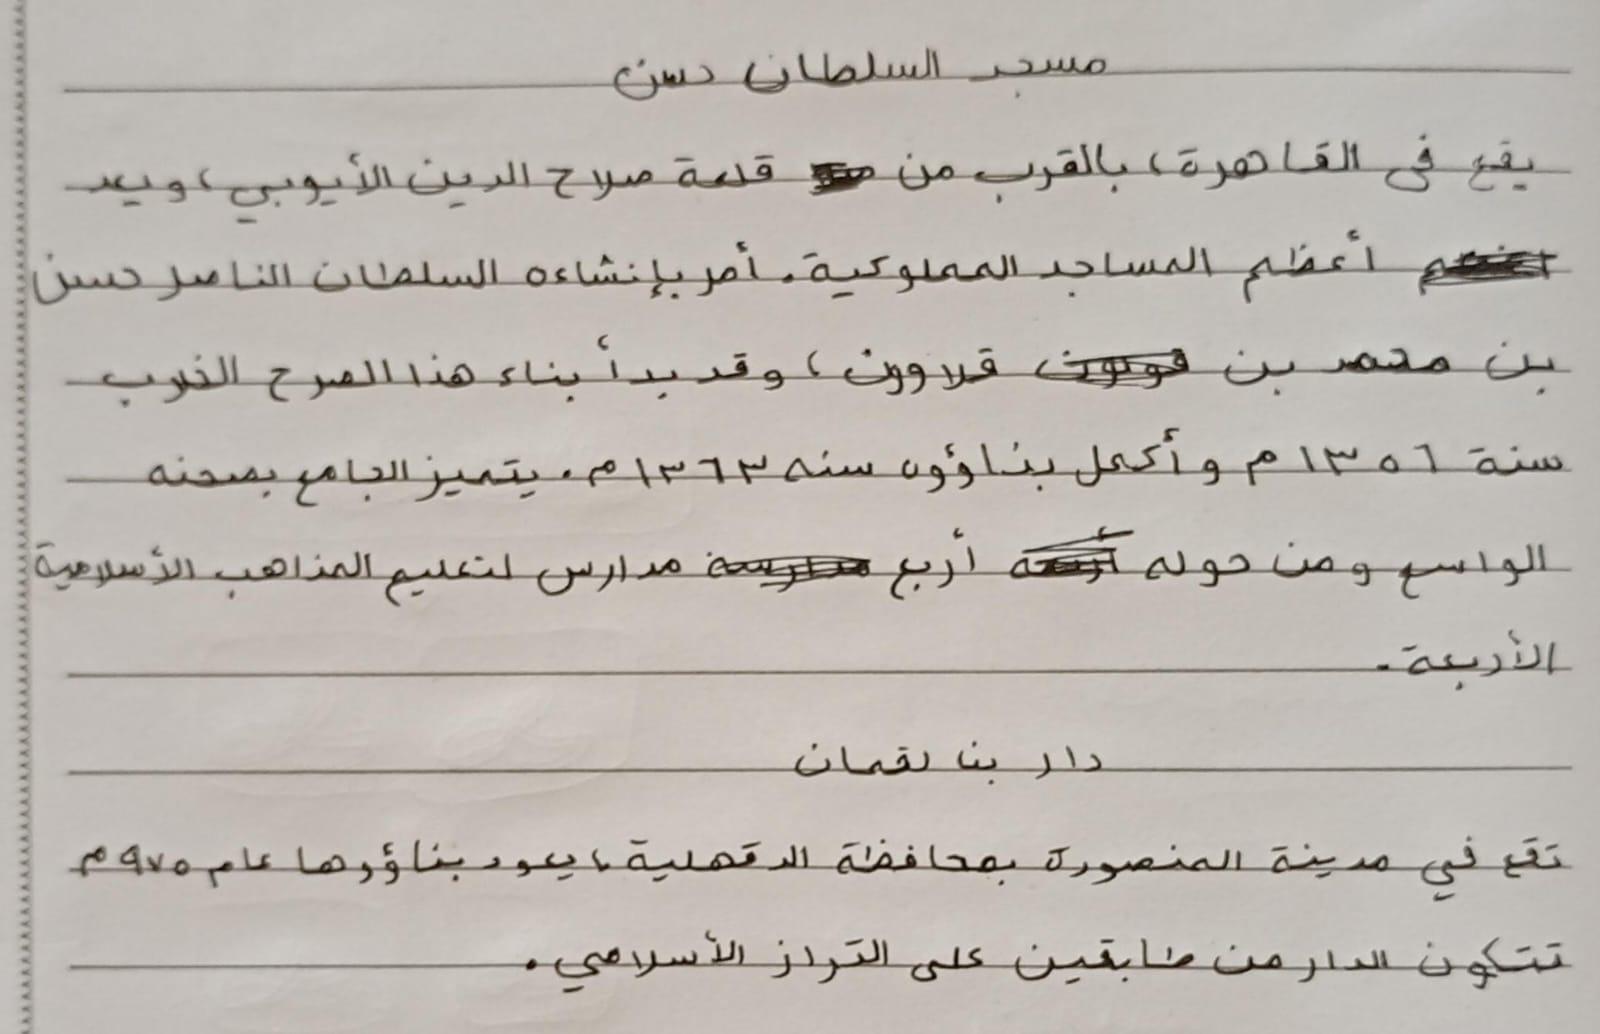 مسجد السلطان حسن
يقع في القاهرة، بالقرب من قلعة صلاح الدين الأيوبي، ويعد
أعظم المساجد المملوكية. أمر بإنشاءه السلطان الناصر حسن
بن محمد بن قلاوون، وقد بدأ بناء هذا الصرح
سنة ١٣٥٦م وأكمل بناؤه سنه ١٣٦٣م. يتميز الجامع بصحنه
الواسع ومن حوله أربع مدارس لتعليم المذاهب الأسلامية
الأربعة.
دار بنا لقمان
تقع في مدينة المنصورة بمحافظة الدقهلية، يعود بناؤها عام ٩٧٥م
تتكون الدار من طابقين على التراز الأسلامي.